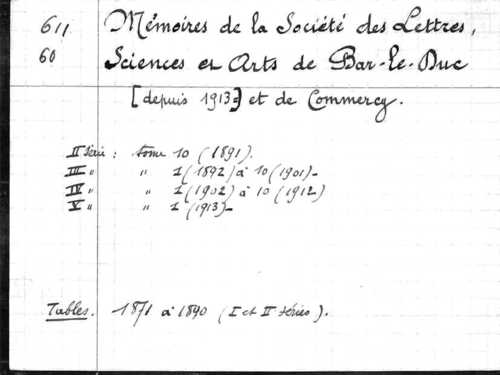 611 Mémoires de la Société des Lettres,
60 Sciences et Arts de Bar-le-Duc
[depuis 1913:] et de Commercy.
II Série : tome 10 (1891).
III " " 1 (1892) à 10 (1901)-
IV " " 1 (1902) à 10 (1912)
V " " 1 (1913)-
Tables. 1871 à 1890 (I et II séries).